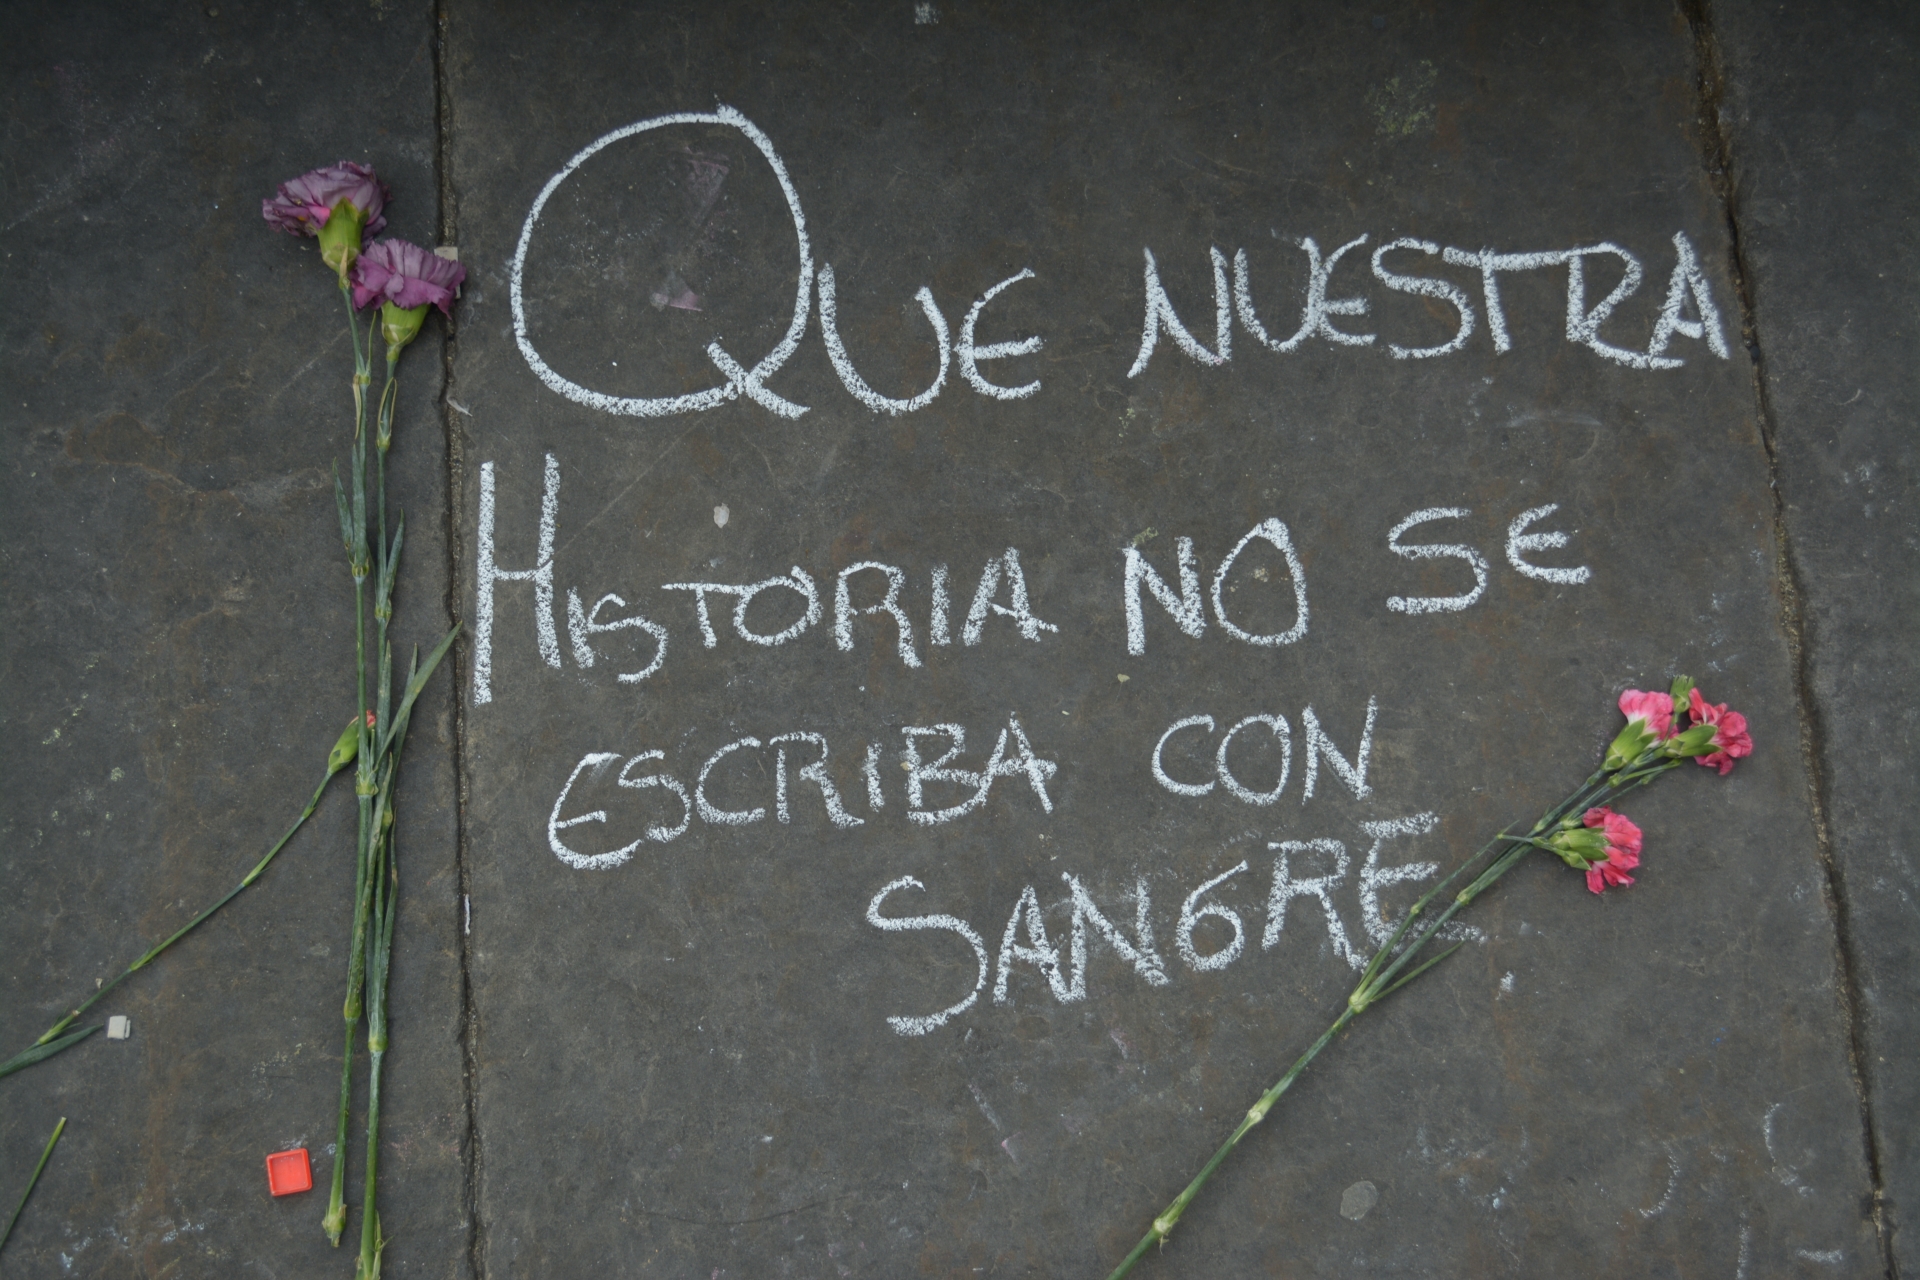 QUE NUESTRA
HISTORIA NO SE
ESCRIBA CON
SANGRE